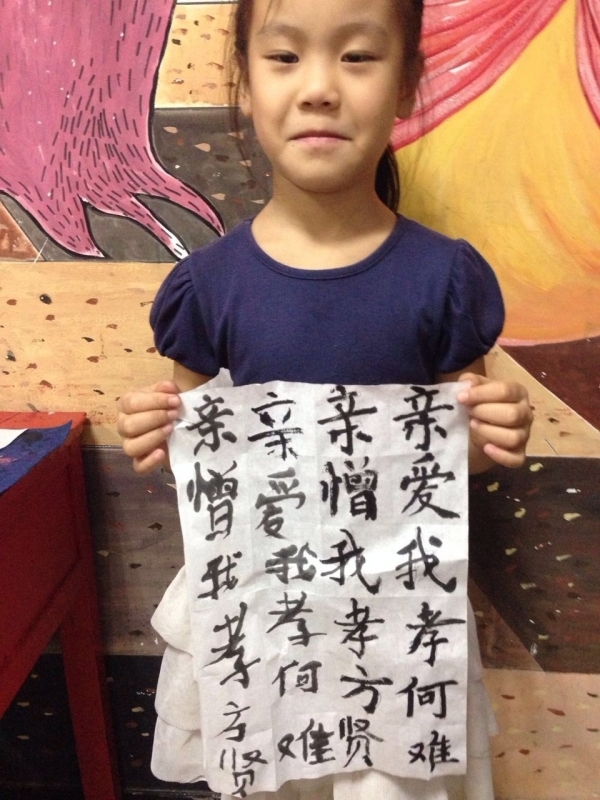 亲爱我孝何难
亲憎我孝方贤
亲爱我孝何难
亲憎我孝方贤